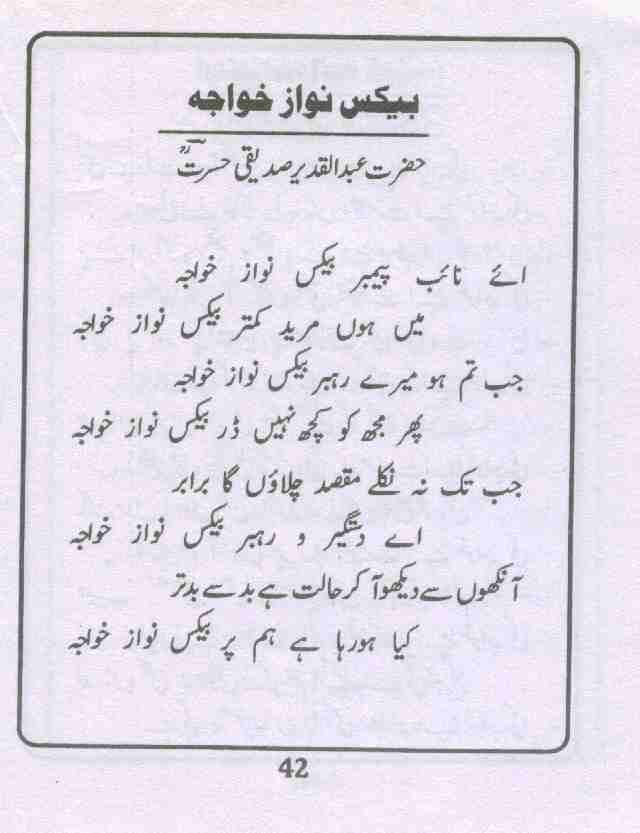 بیکس نواز خواجہ
حضرت عبدالقدیر صدیقی حسرتؒ
ائے نائب پیمبر بیکس نواز خواجہ
میں ہوں مرید کمتر بیکس نواز خواجہ
جب تم ہو میرے رہبر بیکس نواز خواجہ
پھر مجھ کو کچھ نہیں ڈر بیکس نواز خواجہ
جب تک نہ نکلے مقصد چلاؤں گا برابر
اے دستگیر و رہبر بیکس نواز خواجہ
آنکھوں سے دیکھو آکر حالت ہے بد سے بدتر
کیا ہورہا ہے ہم پر بیکس نواز خواجہ
42